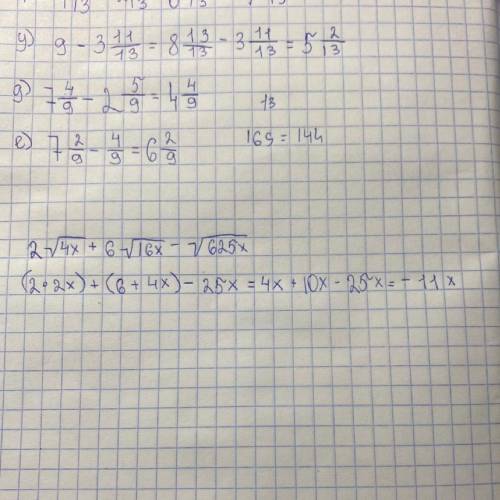 y) 9 - 3 11/13 = 8 13/13 - 3 11/13 = 5 2/13
g) 7 4/9 - 2 5/9 = 4 4/9
13
e) 7 2/9 - 4/9 = 6 2/9
169 = 144
2√4x + 6√16x - √625x
(2·2x) + (6 + 4x) - 25x = 4x + 10x - 25x = - 11x